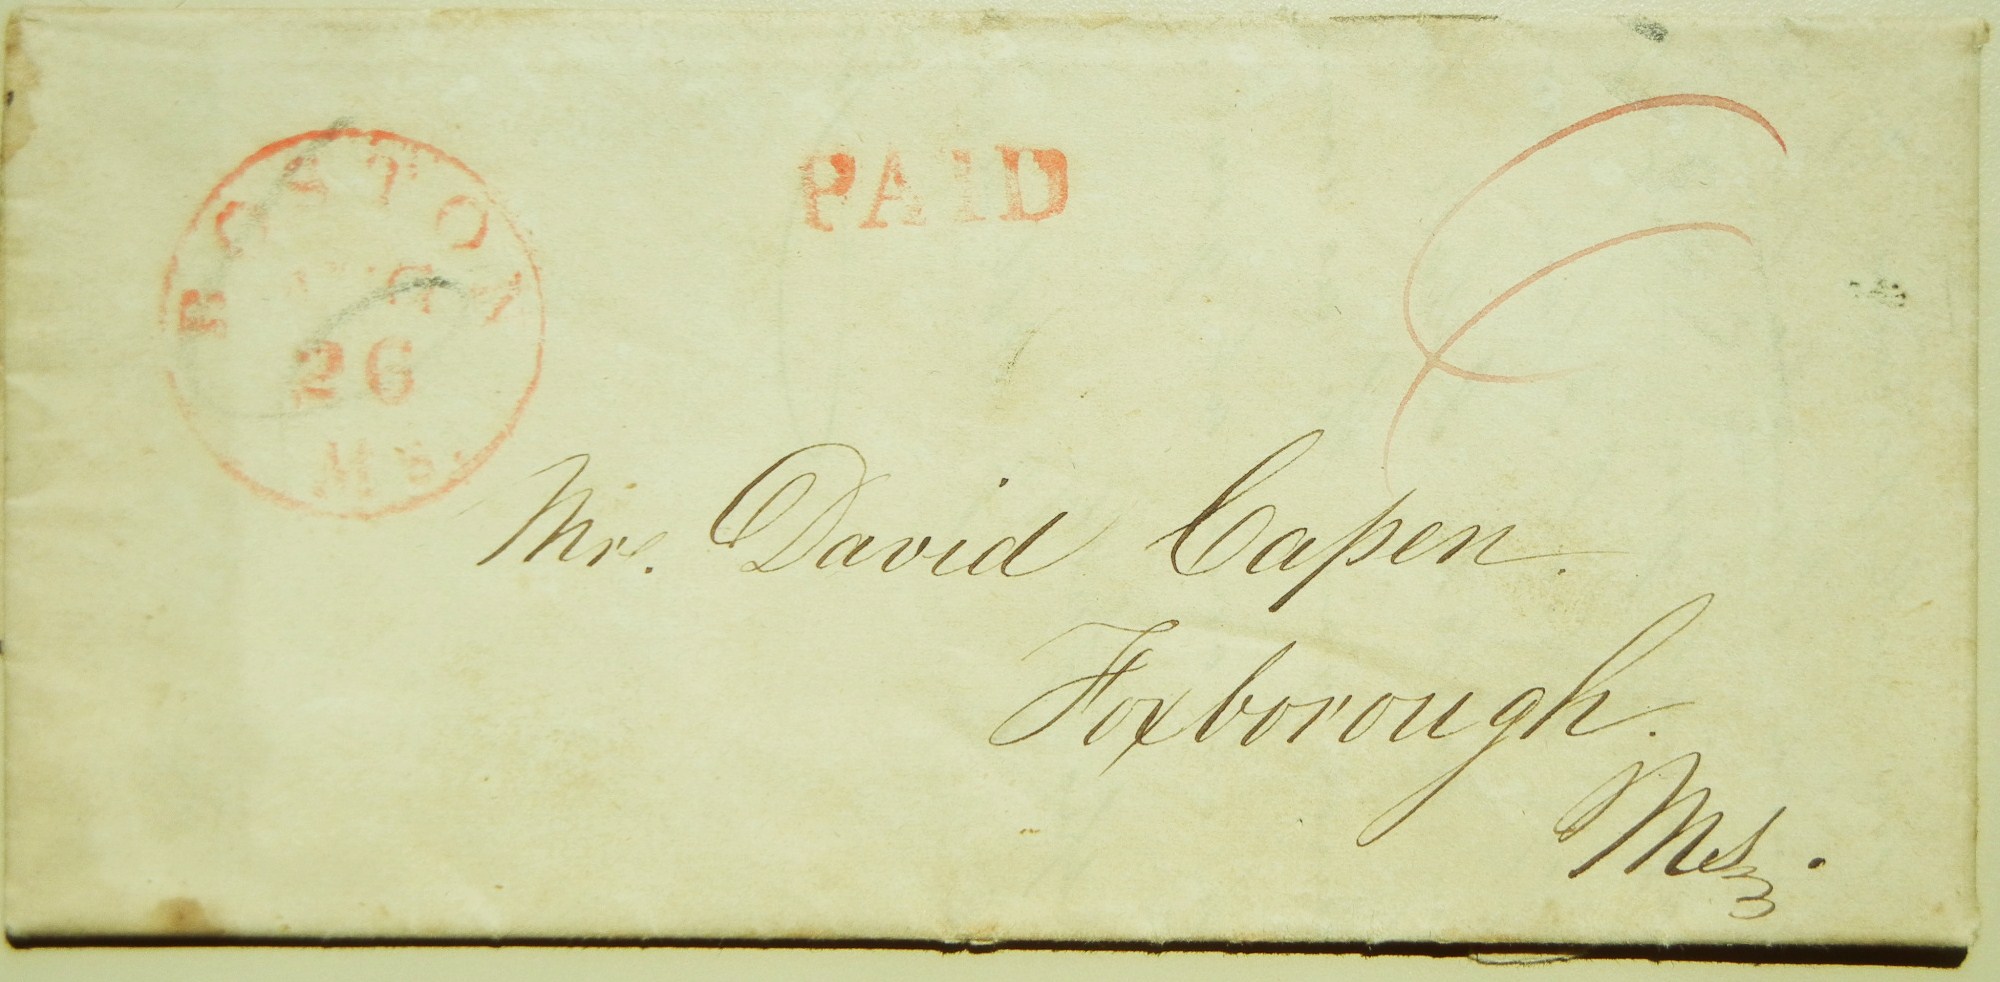 BOSTON
AUG
26
Ms.
PAID
6
Mr. David Capen.
Foxborough.
Ms.